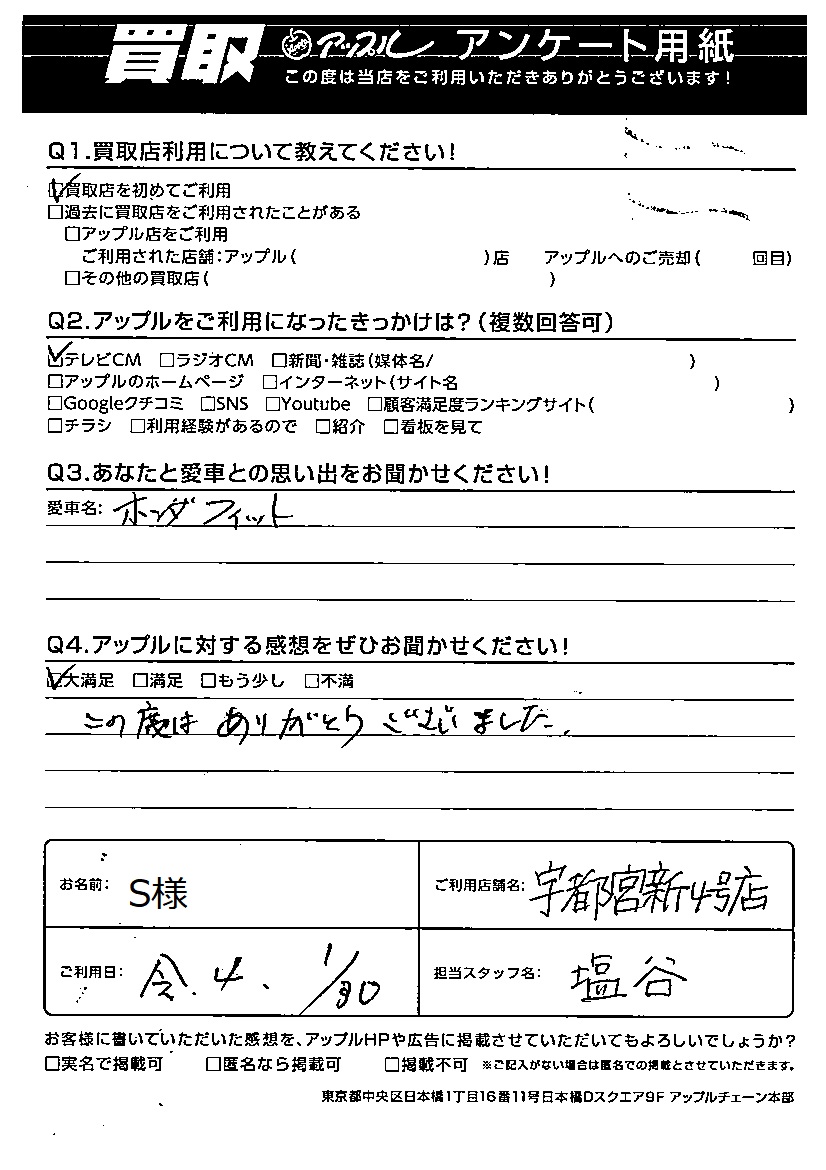 買取 アップル アンケート用紙
この度は当店をご利用いただきありがとうございます!
Q1.買取店利用について教えてください!
☑買取店を初めてご利用
□過去に買取店をご利用されたことがある
□アップル店をご利用
ご利用された店舗:アップル( )店 アップルへのご売却( 回目)
□その他の買取店( )
Q2.アップルをご利用になったきっかけは?(複数回答可)
☑テレビCM □ラジオCM □新聞・雑誌(媒体名/ )
□アップルのホームページ □インターネット(サイト名 )
□Googleクチコミ □SNS □Youtube □顧客満足度ランキングサイト( )
□チラシ □利用経験があるので □紹介 □看板を見て
Q3.あなたと愛車との思い出をお聞かせください!
愛車名: ホンダ フィット
Q4.アップルに対する感想をぜひお聞かせください!
☑大満足 □満足 □もう少し □不満
この度は ありがとうございました。
お名前: S様
ご利用店舗名: 宇都宮新4号店
ご利用日: 令.4. 1/30
担当スタッフ名: 塩谷
お客様に書いていただいた感想を、アップルHPや広告に掲載させていただいてもよろしいでしょうか?
□実名で掲載可 □匿名なら掲載可 □掲載不可 ※ご記入がない場合は匿名での掲載とさせていただきます。
東京都中央区日本橋1丁目16番11号日本橋Dスクエア9F アップルチェーン本部